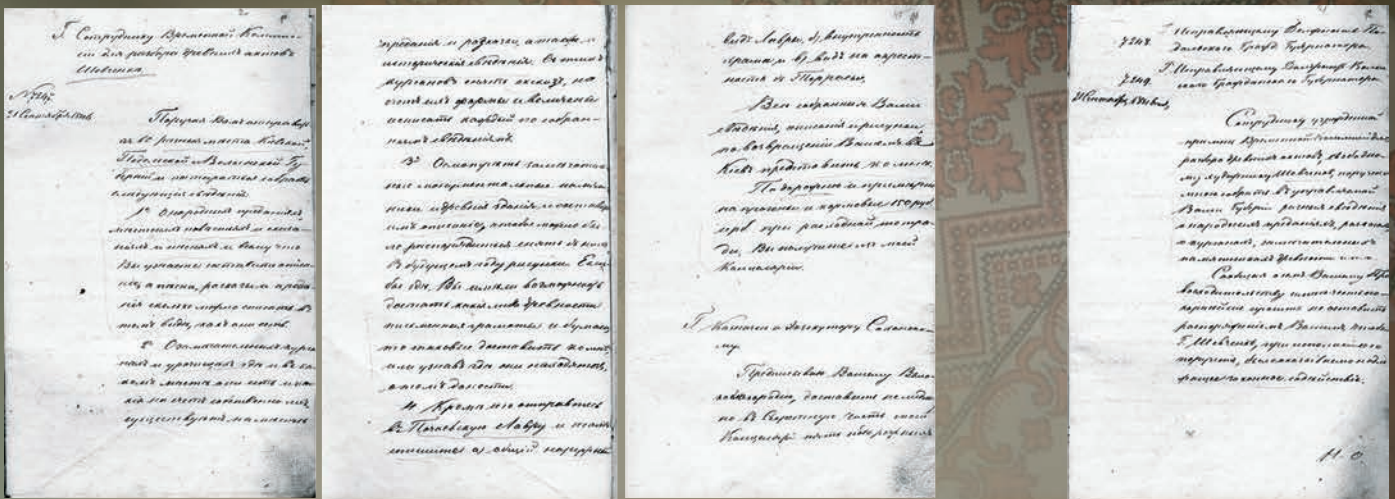 Г. Сотруднику Временной Коммис-
сіи для разбора древнихъ актовъ
Шевченко.
21 Сентября 1846
Поручаю Вамъ отправит
ся въ разныя мѣста Кіевской,
Подольской и Волынской Гу-
берній и постараться собрать
слѣдующія свѣдѣнія:
1е О народныхъ преданіяхъ,
мѣстныхъ повѣстяхъ и сказа-
ніяхъ и пѣсняхъ и всему что
Вы узнаете составить описа-
ніе, а пѣсни, разсказы и преда-
нія сколько можно списать въ
томъ видѣ, какъ они есть.
2е О замѣчательныхъ курга-
нахъ и урочищахъ гдѣ и въ ка-
комъ мѣстѣ они есть и ка-
кія на счетъ собственно ихъ
существуютъ на мѣстѣ
преданія и разсказы, а также и
историческія свѣдѣнія. Съ этихъ
кургановъ снять эскизы, на
счетъ ихъ формы и величины
и описать каждый по собран-
нымъ свѣдѣніямъ.
3е Осмотрѣть замѣчатель-
ные монументальные памят-
ники и древнія зданія и состави
имъ описаніе, чтобы можно бы-
ло распорядиться снять съ нихъ
въ будущемъ году рисунки. Если
бы гдѣ Вы имѣли возможность
достать какія либо древности
письменныя грамоты и бумаги,
то таковыя доставить ко мнѣ,
или узнавъ гдѣ они находятся,
о томъ донести.
4е Кромѣ того отправьтесь
въ Почаевскую Лавру и тамъ
снимите а) общій наружный
видъ Лавры, б) внутренность
храма и в) видъ на окрест-
ность съ Террасы.
Всѣ собранныя Вами
свѣдѣнія, описанія и рисунки,
по возвращеніи Вашемъ въ
Кіевъ представить ко мнѣ.
Подорожную и примѣрно
на прогоны и кормовые 150 руб.
сер. при расходной тетра-
ди, Вы получите изъ моей
Канцеляріи.
Г. Казначею и Экзекутору
му.
Предписываю Вашему Высо-
коблагородію, доставить немедлен-
но въ Секретную часть моей
Канцеляріи пять
7248. Г. Исправляющему Должность По-
дольскаго Гражд. Губернатора
7249. Г. Исправляющему Должность Волын-
скаго Гражданскаго Губернатора
21 Сентября 1846
Сотруднику учрежденной
при мнѣ Временной Коммиссіи для
разбора древнихъ актовъ, свободно-
му художнику Шевченко, поручено
мною собрать въ управляемой
Вами Губерніи разныя свѣдѣнія
о народныхъ преданіяхъ, разсказахъ
о курганахъ, замѣчательныхъ
памятникахъ древности и т. п.
Сообщая о семъ Вашему Пре-
восходительству имѣю честь по-
корнѣйше просить не оставить
распоряженіемъ Вашимъ чтобы
Г. Шевченко, при исполненіи
порученія, было оказываемо надле-
жащее законное содѣйствіе.